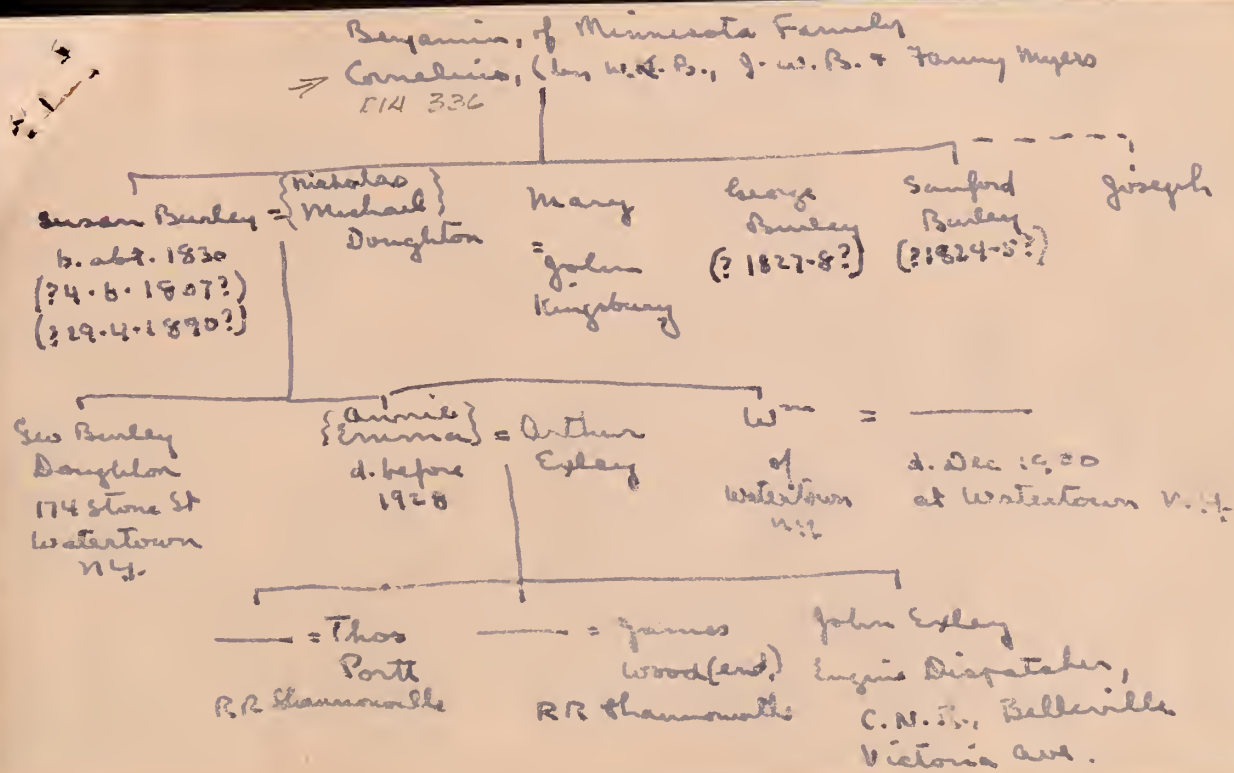 Benjamin, of Minnesota Family
Cornelius, (by W. B., J. W. B. & Fanny Myers
C14 336
Susan Burley = {Nicholas Michael} Doughton
b. abt. 1830
(?4.6.1807?)
(?29.4.1890?)
Mary
=
John
Kingsbury
George
Burley
(? 1827-8?)
Sanford
Burley
(?1824-5?)
Joseph
Geo Burley
Doughton
174 Stone St
Watertown
N.Y.
{Annie Emma} = Arthur Exley
d. before
1928
Wm =
of
Watertown
N.Y.
d. Dec
at Watertown N.Y.
= Thos
Portt
RR Shannonville
= James
Wood(end)
RR Shannonville
John Exley
Engine Dispatcher,
C.N.R., Belleville
Victoria Ave.